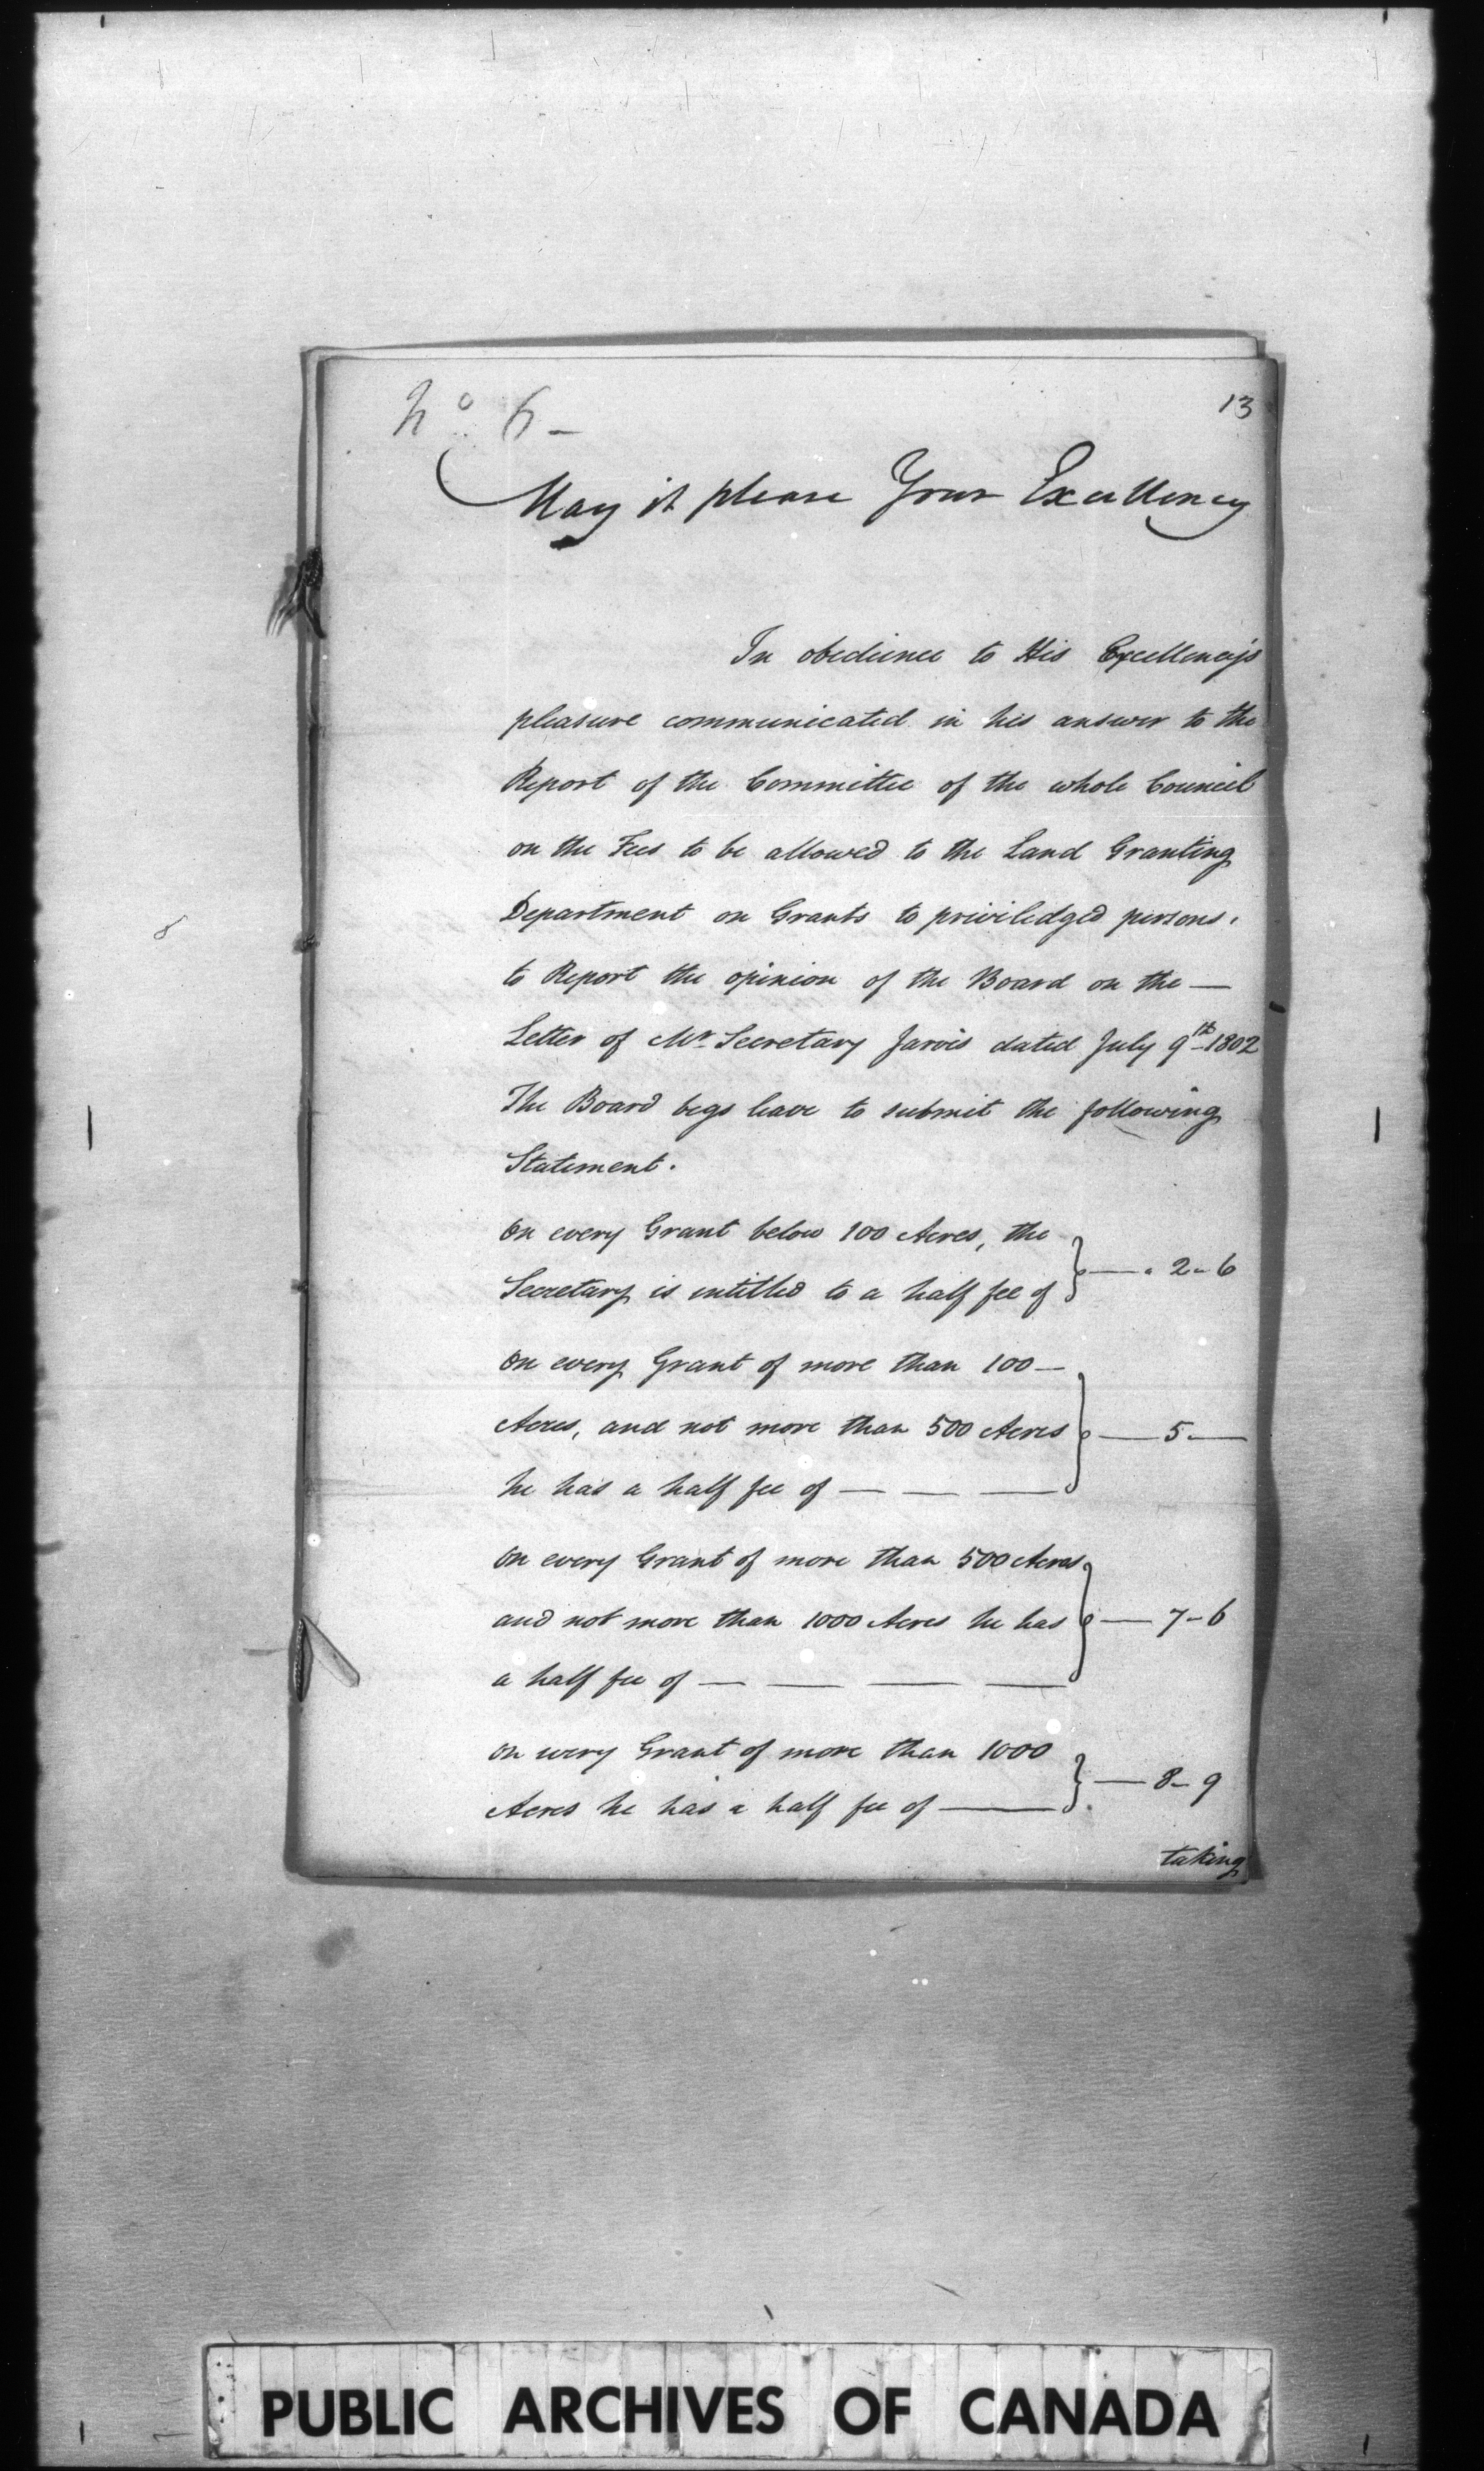 No 6 –
13
May it please Your Excellency
In obedience to His Excellency's
pleasure communicated in his answer to the
Report of the Committee of the whole Council
on the Fees to be allowed to the Land Granting
Department on Grants to priviledged persons,
to Report the opinion of the Board on the —
Letter of Mr Secretary Jarvis dated July 9th 1802
The Board begs leave to submit the following
Statement.
On every Grant below 100 Acres, the
Secretary is intitled to a half fee of } — " 2 – 6
On every Grant of more than 100 —
Acres, and not more than 500 Acres } — 5 —
he has a half fee of — — —
On every Grant of more than 500 Acres
and not more than 1000 Acres he has } — 7 – 6
a half fee of — — — —
On every Grant of more than 1000
Acres he has a half fee of — } — 8 – 9
taking
PUBLIC ARCHIVES OF CANADA